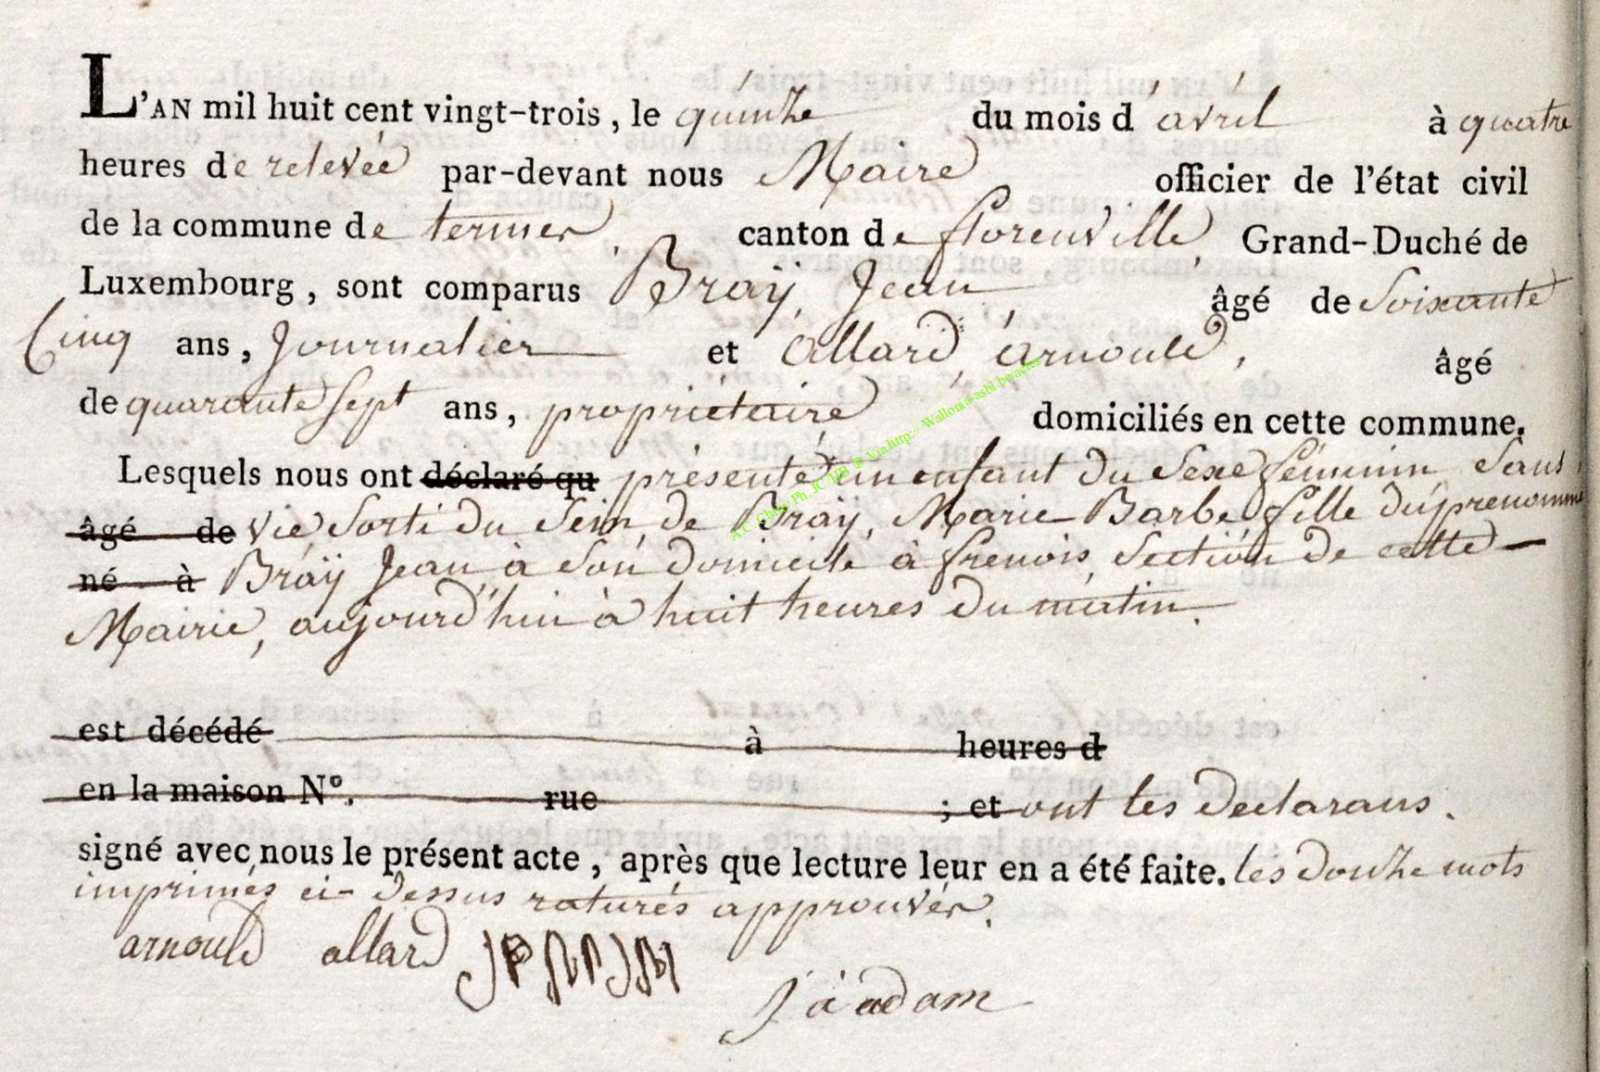 L'AN mil huit cent vingt-trois, le quinze du mois d'avril à quatre
heures de relevée par-devant nous Maire officier de l'état civil
de la commune de termes canton de florenville Grand-Duché de
Luxembourg, sont comparus Braÿ, Jean, âgé de Soixante
Cinq ans, Journalier et Allard, arnould, âgé
de quarante Sept ans, propriétaire domiciliés en cette commune.
Lesquels nous ont déclaré qu présenté un enfant du Sexe féminin, Sans
âgé de vie, Sorti du Sein, de Braÿ, Marie Barbe fille du prenommé
né à Braÿ Jean, à Son domicile à frenois, Section de cette
Mairie, aujourd'hui à huit heures du matin.
est décédé à heures d
en la maison N°. rue ; et ont les declarans.
signé avec nous le présent acte, après que lecture leur en a été faite. les douze mots
imprimés ci-dessus raturés approuvés.
arnould allard
J a adam